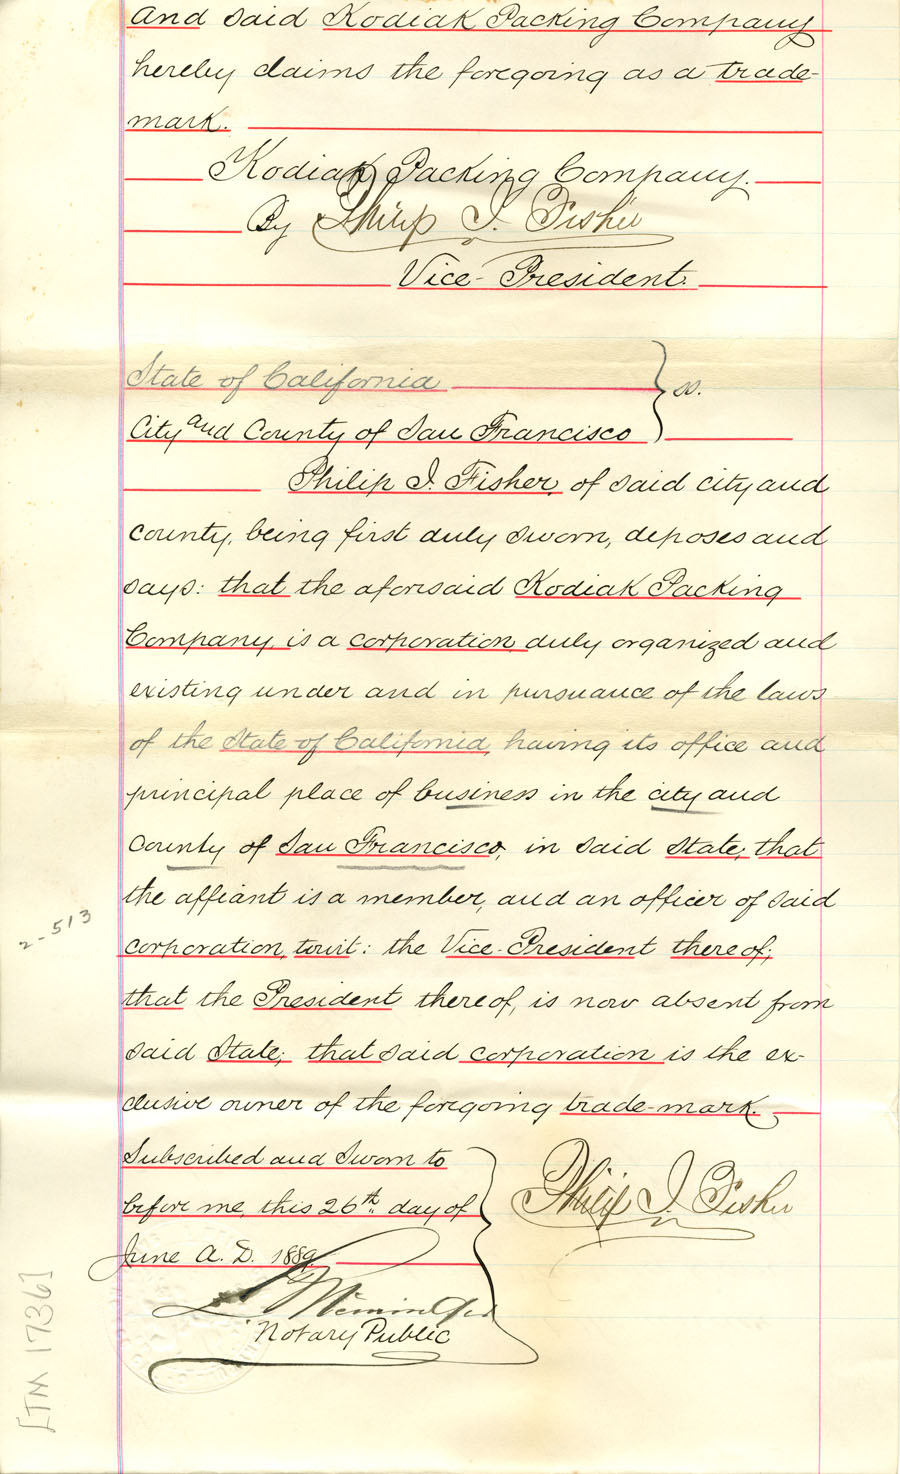 And said Kodiak Packing Company
hereby claims the foregoing as a trade-
mark.
Kodiak Packing Company.
By Philip I. Fisher
Vice-President.
State of California
ss.
City and County of San Francisco
Philip I. Fisher, of said city and
county, being first duly sworn, deposes and
says: that the aforesaid Kodiak Packing
Company, is a corporation, duly organized and
existing under and in pursuance of the laws
of the State of California, having its office and
principal place of business in the city and
county of San Francisco, in said State; that
the affiant is a member, and an officer of said
2-513
corporation, towit: the Vice-President thereof;
that the President thereof, is now absent from
said State; that said corporation is the ex-
clusive owner of the foregoing trade-mark.
Subscribed and Sworn to
before me, this 26th day of
June A.D. 1889
Philip I. Fisher
Notary Public
[TM 1736]